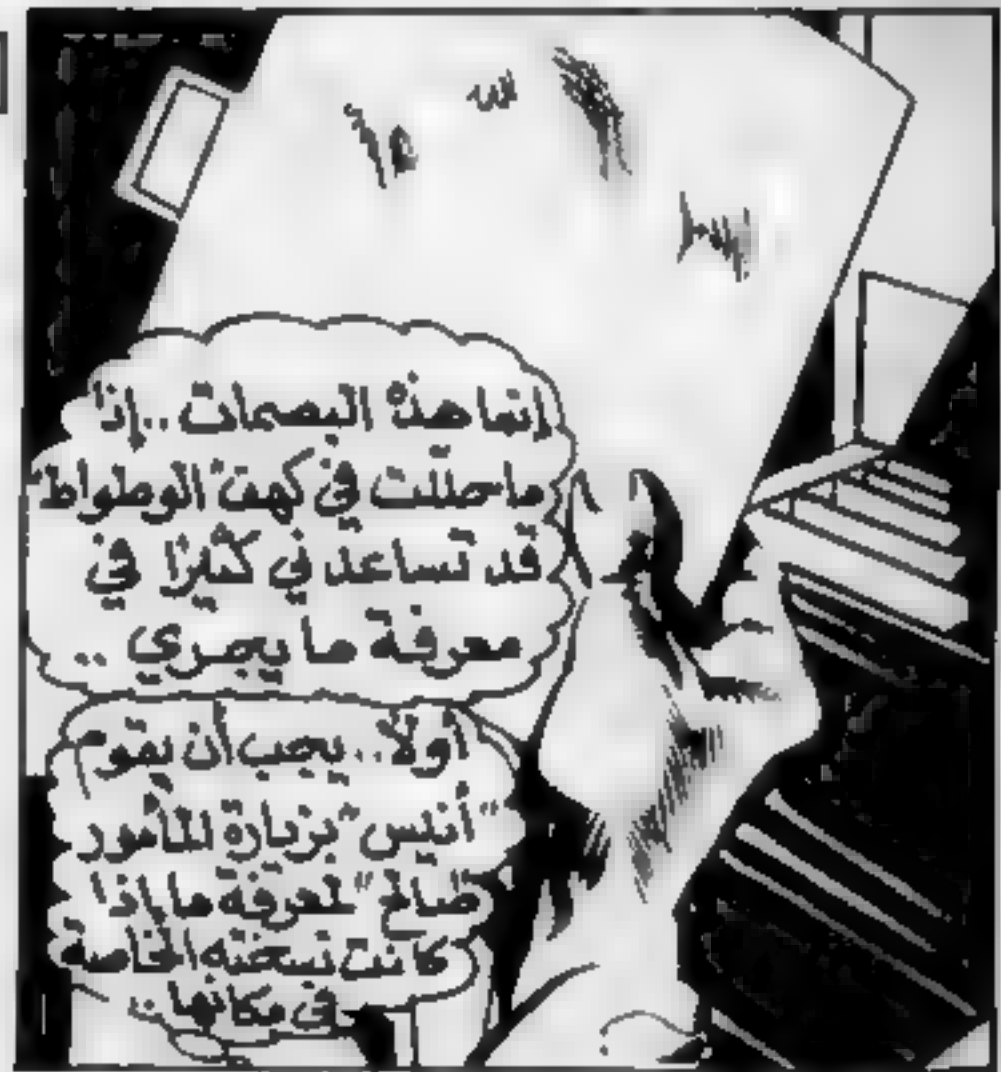 إنما هذه البصمات .. إذا
ما حللت في كهف "الوطواط"
قد تساعدني كثيرًا في
معرفة ما يجري ..
أولًا .. يجب أن يقوم
"أنيس" بزيارة للمأمور
"صالح" لمعرفة ما إذا
كانت نسخته الخاصة
في مكانها ..